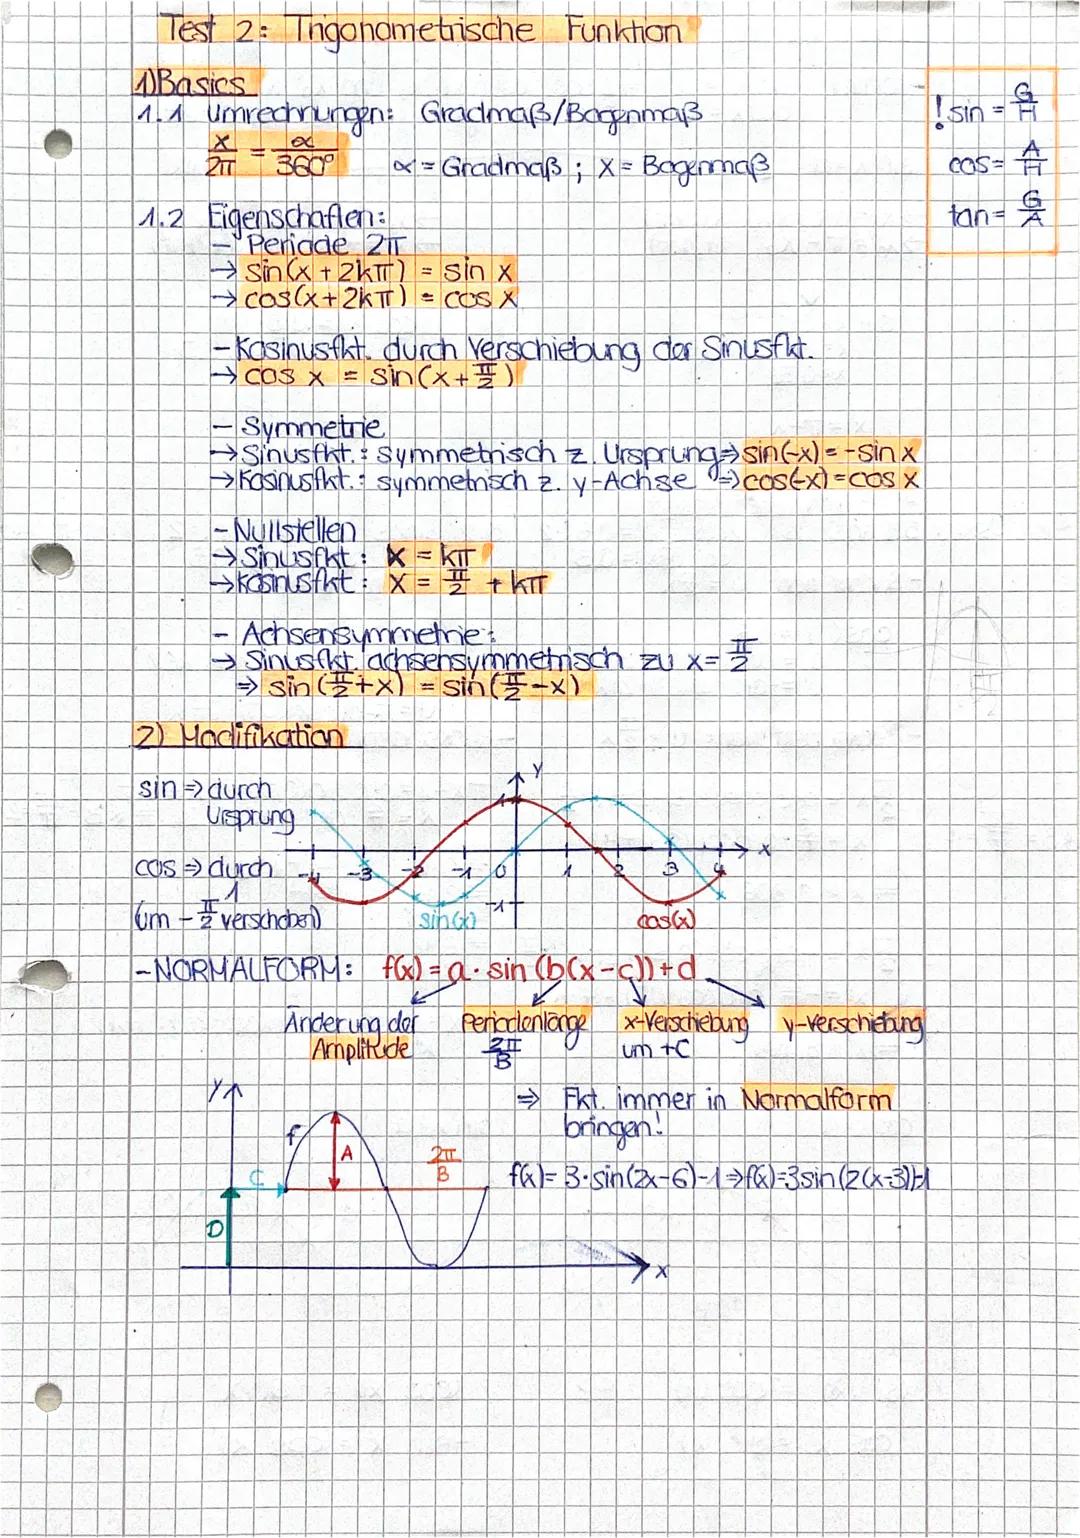 Test 2: Trigonometrische Funktion
1) Basics
1.1 Umrechnungen: Gradmaß/Bogenmaß
x/2π = α/360° α = Gradmaß ; x = Bogenmaß
! sin = G/H
cos = A/H
tan = G/A
1.2 Eigenschaften:
- Periode 2π
→ sin(x + 2kπ) = sin x
→ cos(x + 2kπ) = cos x
- Kosinusfkt. durch Verschiebung der Sinusfkt.
→ cos x = sin(x + π/2)
- Symmetrie
→ Sinusfkt.: symmetrisch z. Ursprung ⇒ sin(-x) = -sin x
→ Kosinusfkt.: symmetrisch z. y-Achse ⇒ cos(-x) = cos x
- Nullstellen
→ Sinusfkt: x = kπ
→ Kosinusfkt: x = π/2 + kπ
- Achsensymmetrie:
→ Sinusfkt. achsensymmetrisch zu x = π/2
⇒ sin(π/2 + x) = sin(π/2 - x)
2) Modifikation
sin ⇒ durch
Ursprung
cos ⇒ durch
1
(um - π/2 verschoben)
y
1
x
-4 -3 -2 -1 0 1 2 3 4
-1
sin(x)
cos(x)
- NORMALFORM: f(x) = a · sin (b(x - c)) + d
Änderung der Periodenlänge x-Verschiebung y-Verschiebung
Amplitude 2π/B um +C
⇒ Fkt. immer in Normalform
bringen!
f(x) = 3·sin(2x-6)-1 ⇒ f(x)=3sin(2(x-3))-1
y
f
A
2π/B
C
D
x